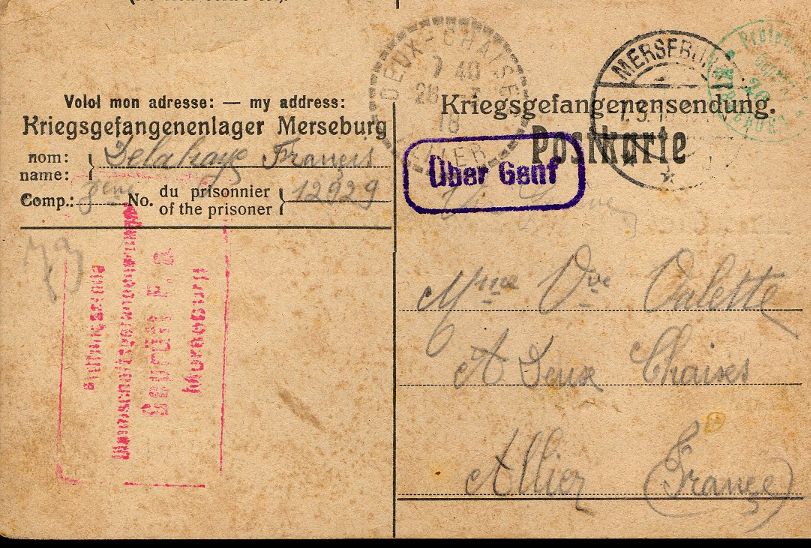 Volol mon adresse: — my address:
Kriegsgefangenenlager Merseburg
nom:
name: Delahaye Françis
Comp.: 8eme No. du prisonnier
of the prisoner 12929
73
Mannschaftsgefangenenlager
Geprüft F. a
Merseburg
DEUX-CHAISES
7 40
28
18
ALLIER
Kriegsgefangenensendung.
Postkarte
MERSEBURG
Über Genf
Mme Vve Valette
A Deux Chaises
Allier (France)